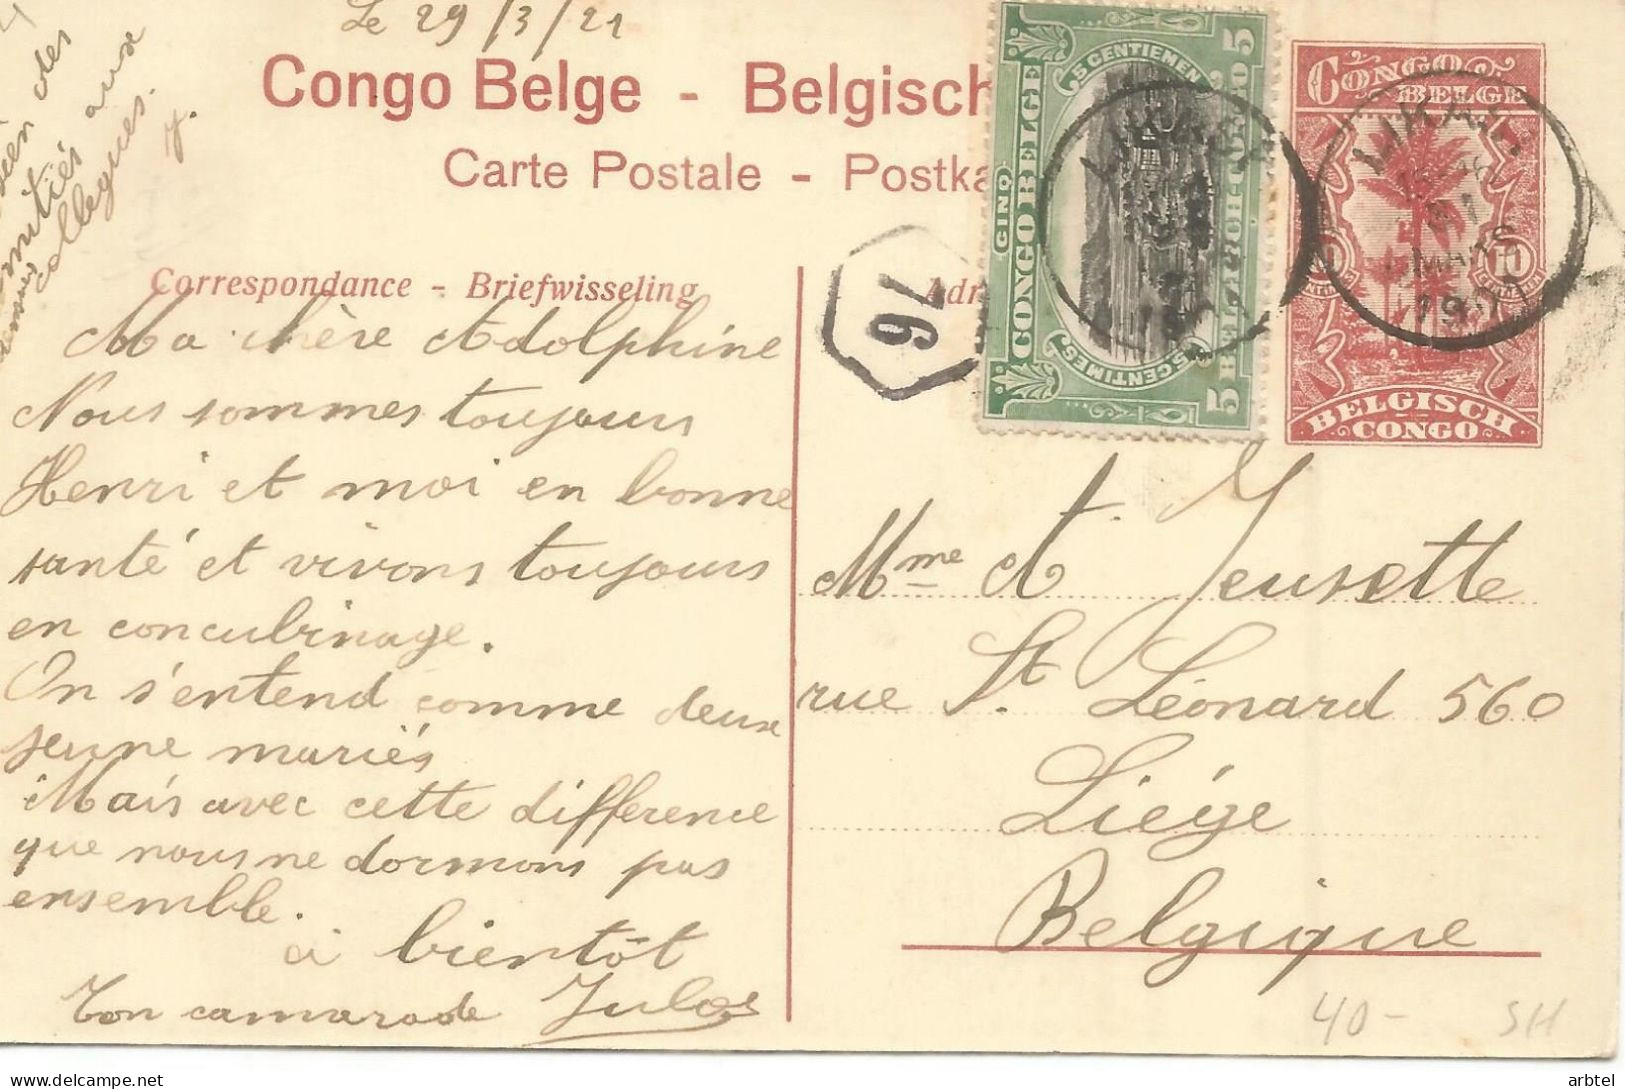 Le 29/3/21
Congo Belge - Belgisch
Carte Postale - Postka
Correspondance - Briefwisseling
Adr
Ma chère Adolphine
Nous sommes toujours
Henri et moi en bonne
santé et vivons toujours
en concubinage.
On s'entend comme deux
jeune mariés
Mais avec cette différence
que nous ne dormons pas
ensemble.
à bientôt
Ton camarade Jules
bien des
amitiés aux
collegues.
J.
76
5 CENTIEMEN 5
CONGO BELGE
CINQ
5 CENTIMES 5
LIKASI
CONGO
BELGE
LIKASI
31
MARS
BELGISCH
CONGO
Mme A. Jeusette
rue St. Léonard 560
Liége
Belgique
40- SH
arbtel